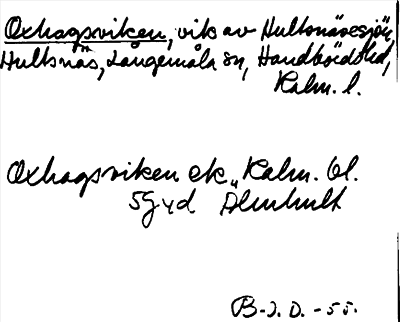 Oxhagsviken, vik av Hultsnäsesjön,
Hultsnäs, Långemåla sn, Handbörds hd,
Kalm. l.
Oxhagsviken ek. Kalm. bl.
5G yd Älmhult
B-J. D. -55.